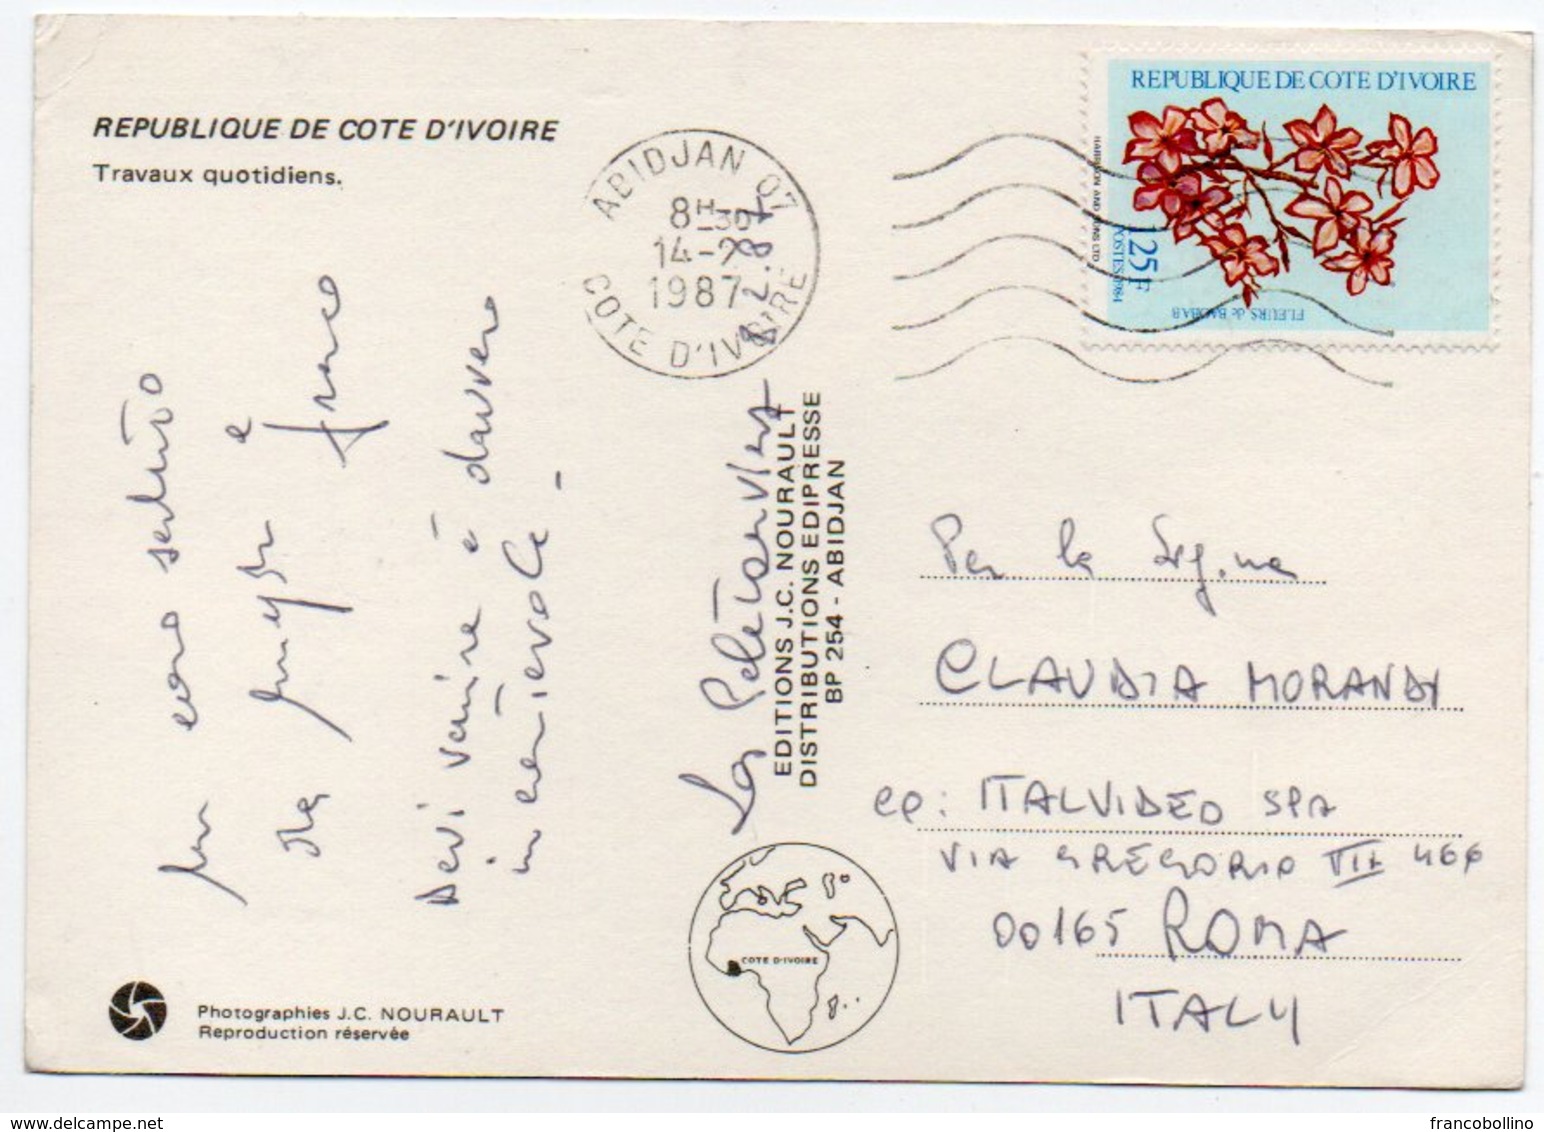 REPUBLIQUE DE COTE D'IVOIRE
Travaux quotidiens.
ABIDJAN 07
8H-30
14-2
1987
COTE D'IVOIRE
REPUBLIQUE DE COTE D'IVOIRE
HARRISON AND SONS LTD
POSTES 1984
125F
FLEURS de BAOBAB
Un caro saluto
da e
franco
Devi venire è davvero
incantevole -
EDITIONS J.C. NOURAULT
DISTRIBUTIONS EDIPRESSE
BP 254 - ABIDJAN
Per la Sig.na
CLAUDIA MORANDI
c/o: ITALVIDEO SPA
VIA GREGORIO VII 466
00165 ROMA
ITALY
COTE D'IVOIRE
Photographies J.C. NOURAULT
Reproduction réservée
francobollino